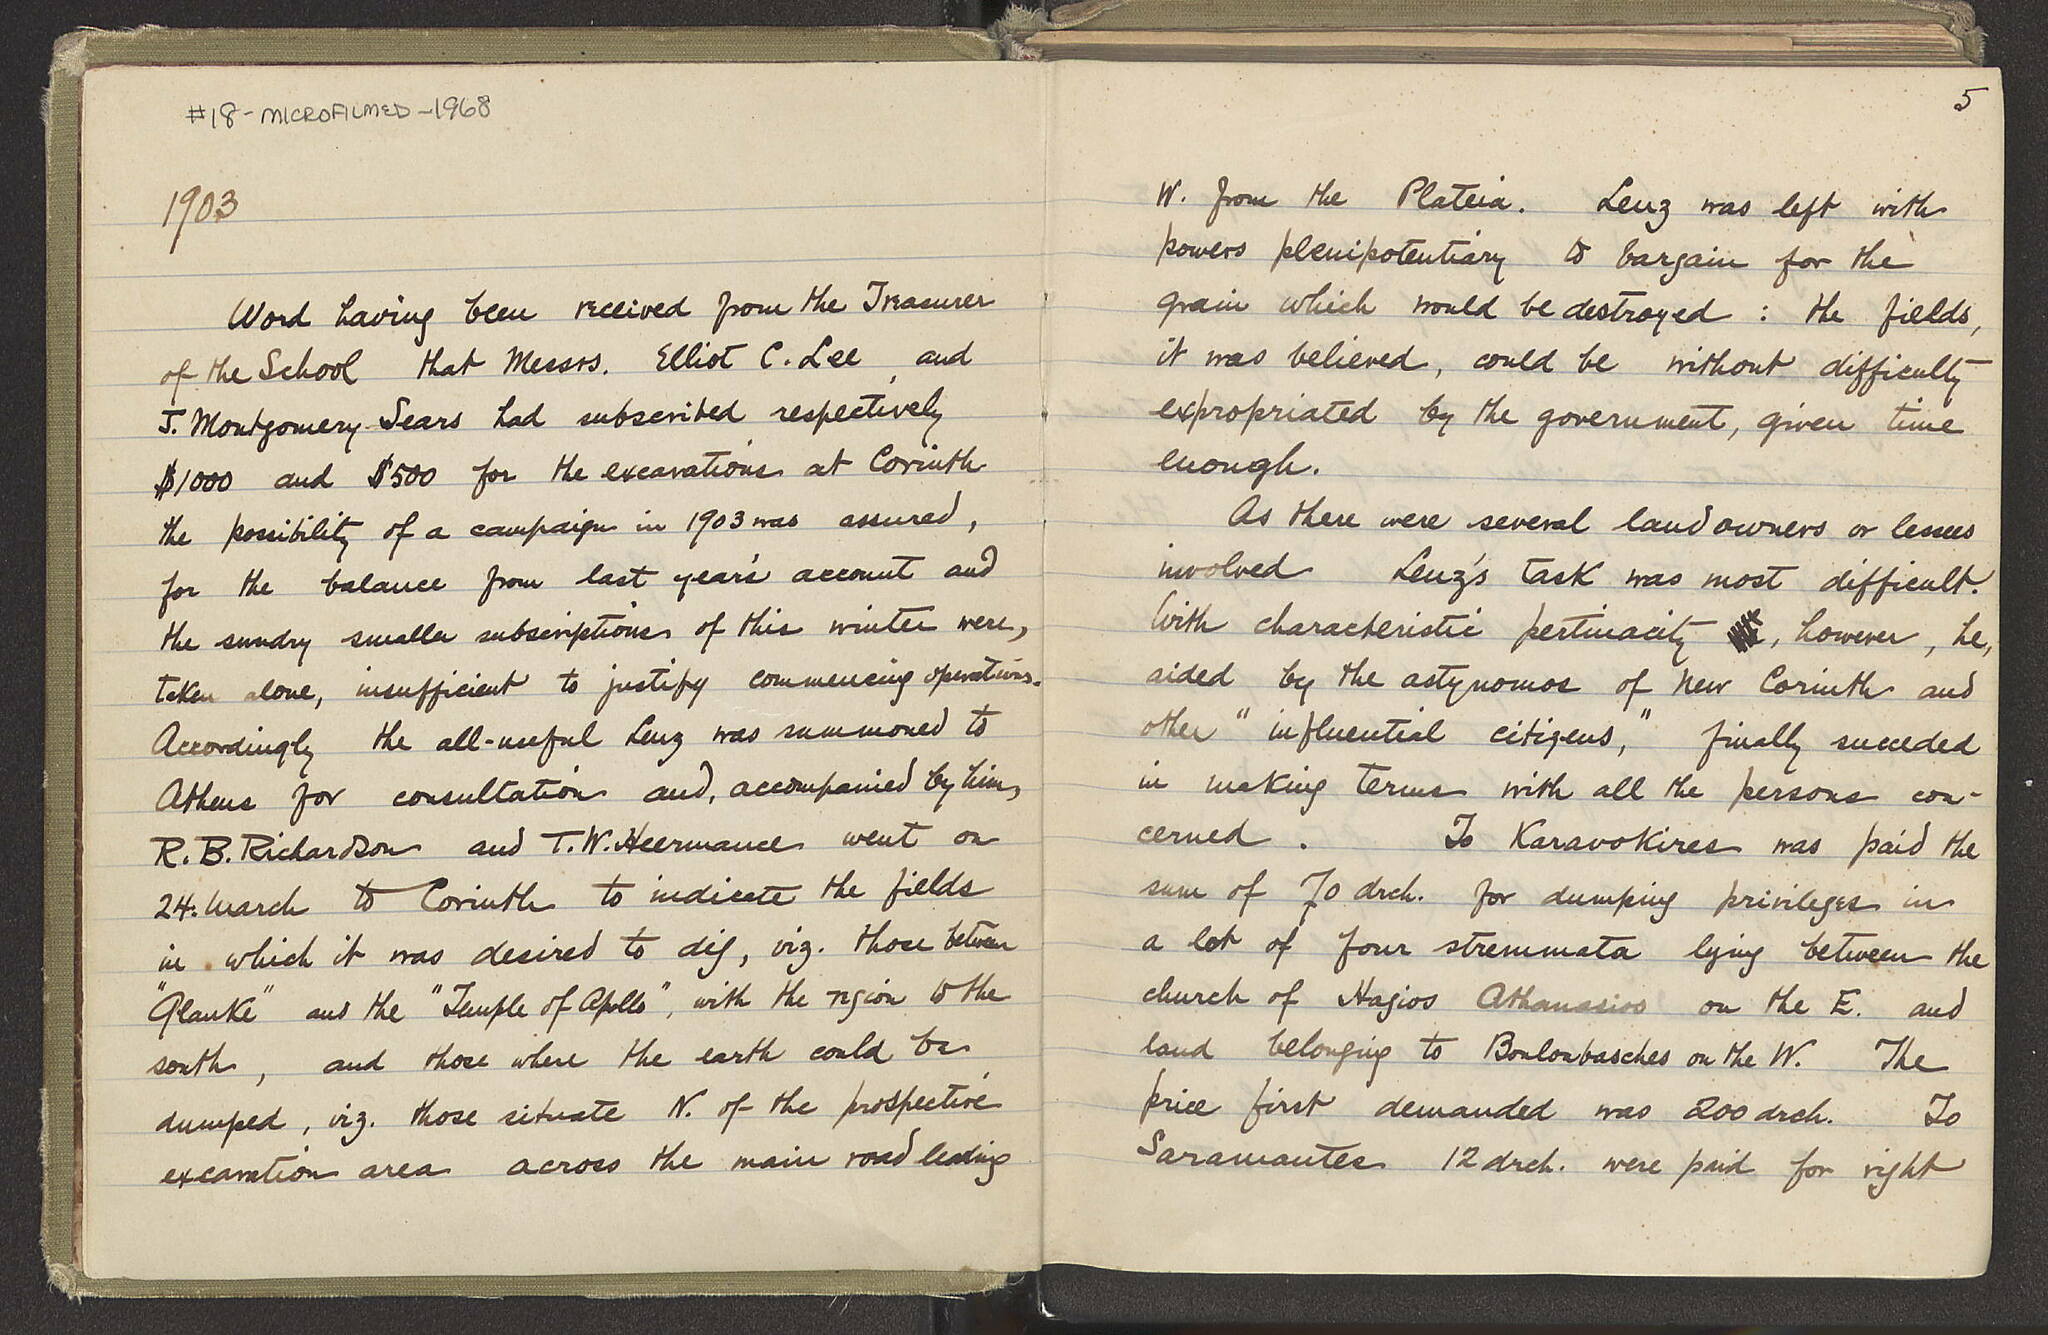 #18 - MICROFILMED - 1968
1903
Word having been received from the Treasurer
of the School that Messrs. Elliot C. Lee and
J. Montgomery Sears had subscribed respectively
$1000 and $500 for the excavations at Corinth
the possibility of a campaign in 1903 was assured,
for the balance from last year's account and
the sundry smaller subscriptions of this winter were,
taken alone, insufficient to justify commencing operations.
Accordingly the all-useful Lenz was summoned to
Athens for consultation and, accompanied by him,
R. B. Richardson and T. W. Heermance went on
24. March to Corinth to indicate the fields
in which it was desired to dig, viz. those between
"Glauke" and the "Temple of Apollo", with the region to the
south, and those where the earth could be
dumped, viz. those situate N. of the prospective
excavation area across the main road leading
5
W. from the Plateia. Lenz was left with
powers plenipotentiary to bargain for the
grain which would be destroyed : the fields,
it was believed, could be without difficulty
expropriated by the government, given time
enough.
As there were several landowners or lessees
involved Lenz's task was most difficult.
With characteristic pertinacity , however, he,
aided by the astynomos of New Corinth and
other "influential citizens," finally succeded
in making terms with all the persons con-
cerned. To Karavokires was paid the
sum of 70 drch. for dumping privileges in
a lot of four stremmata lying between the
church of Hagios Athanasios on the E. and
land belonging to Bouloubasches on the W. The
price first demanded was 200 drch. To
Saramantes 12 drch. were paid for right